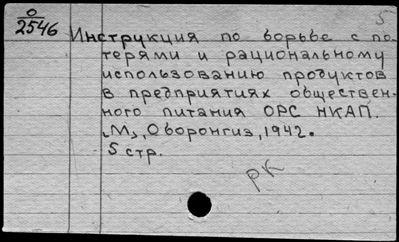 5
О
2546
Инструкция по борьбе с по-
терями и рациональному
использованию продуктов
в предприятиях обществен-
ного питания ОРС НКАП.
М., Оборонгиз, 1942.
5 стр.
РК